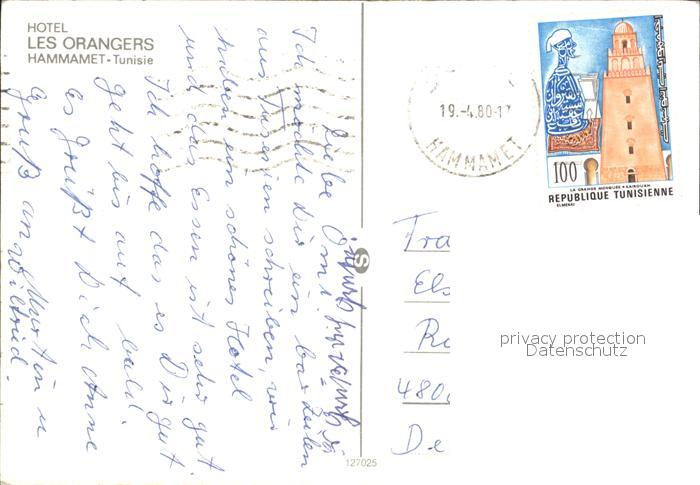 HOTEL
LES ORANGERS
HAMMAMET - Tunisie
Liebe Omi
Ich möchte Dir ein par Zeilen
aus Tunesien schreiben, wir
haben ein schönes Hotel
und das Essen ist sehr gut.
Ich hoffe das es Dir gut
geht bis auf bald.
Es grüßt Dich Anne
Gruß an
19.-4.80-1
HAMMAMET
100
LA GRANDE MOSQUEE • KAIROUAN
REPUBLIQUE TUNISIENNE
ELMEKKI
Fra
Els
Ru
480
De
S
127025
privacy protection
Datenschutz